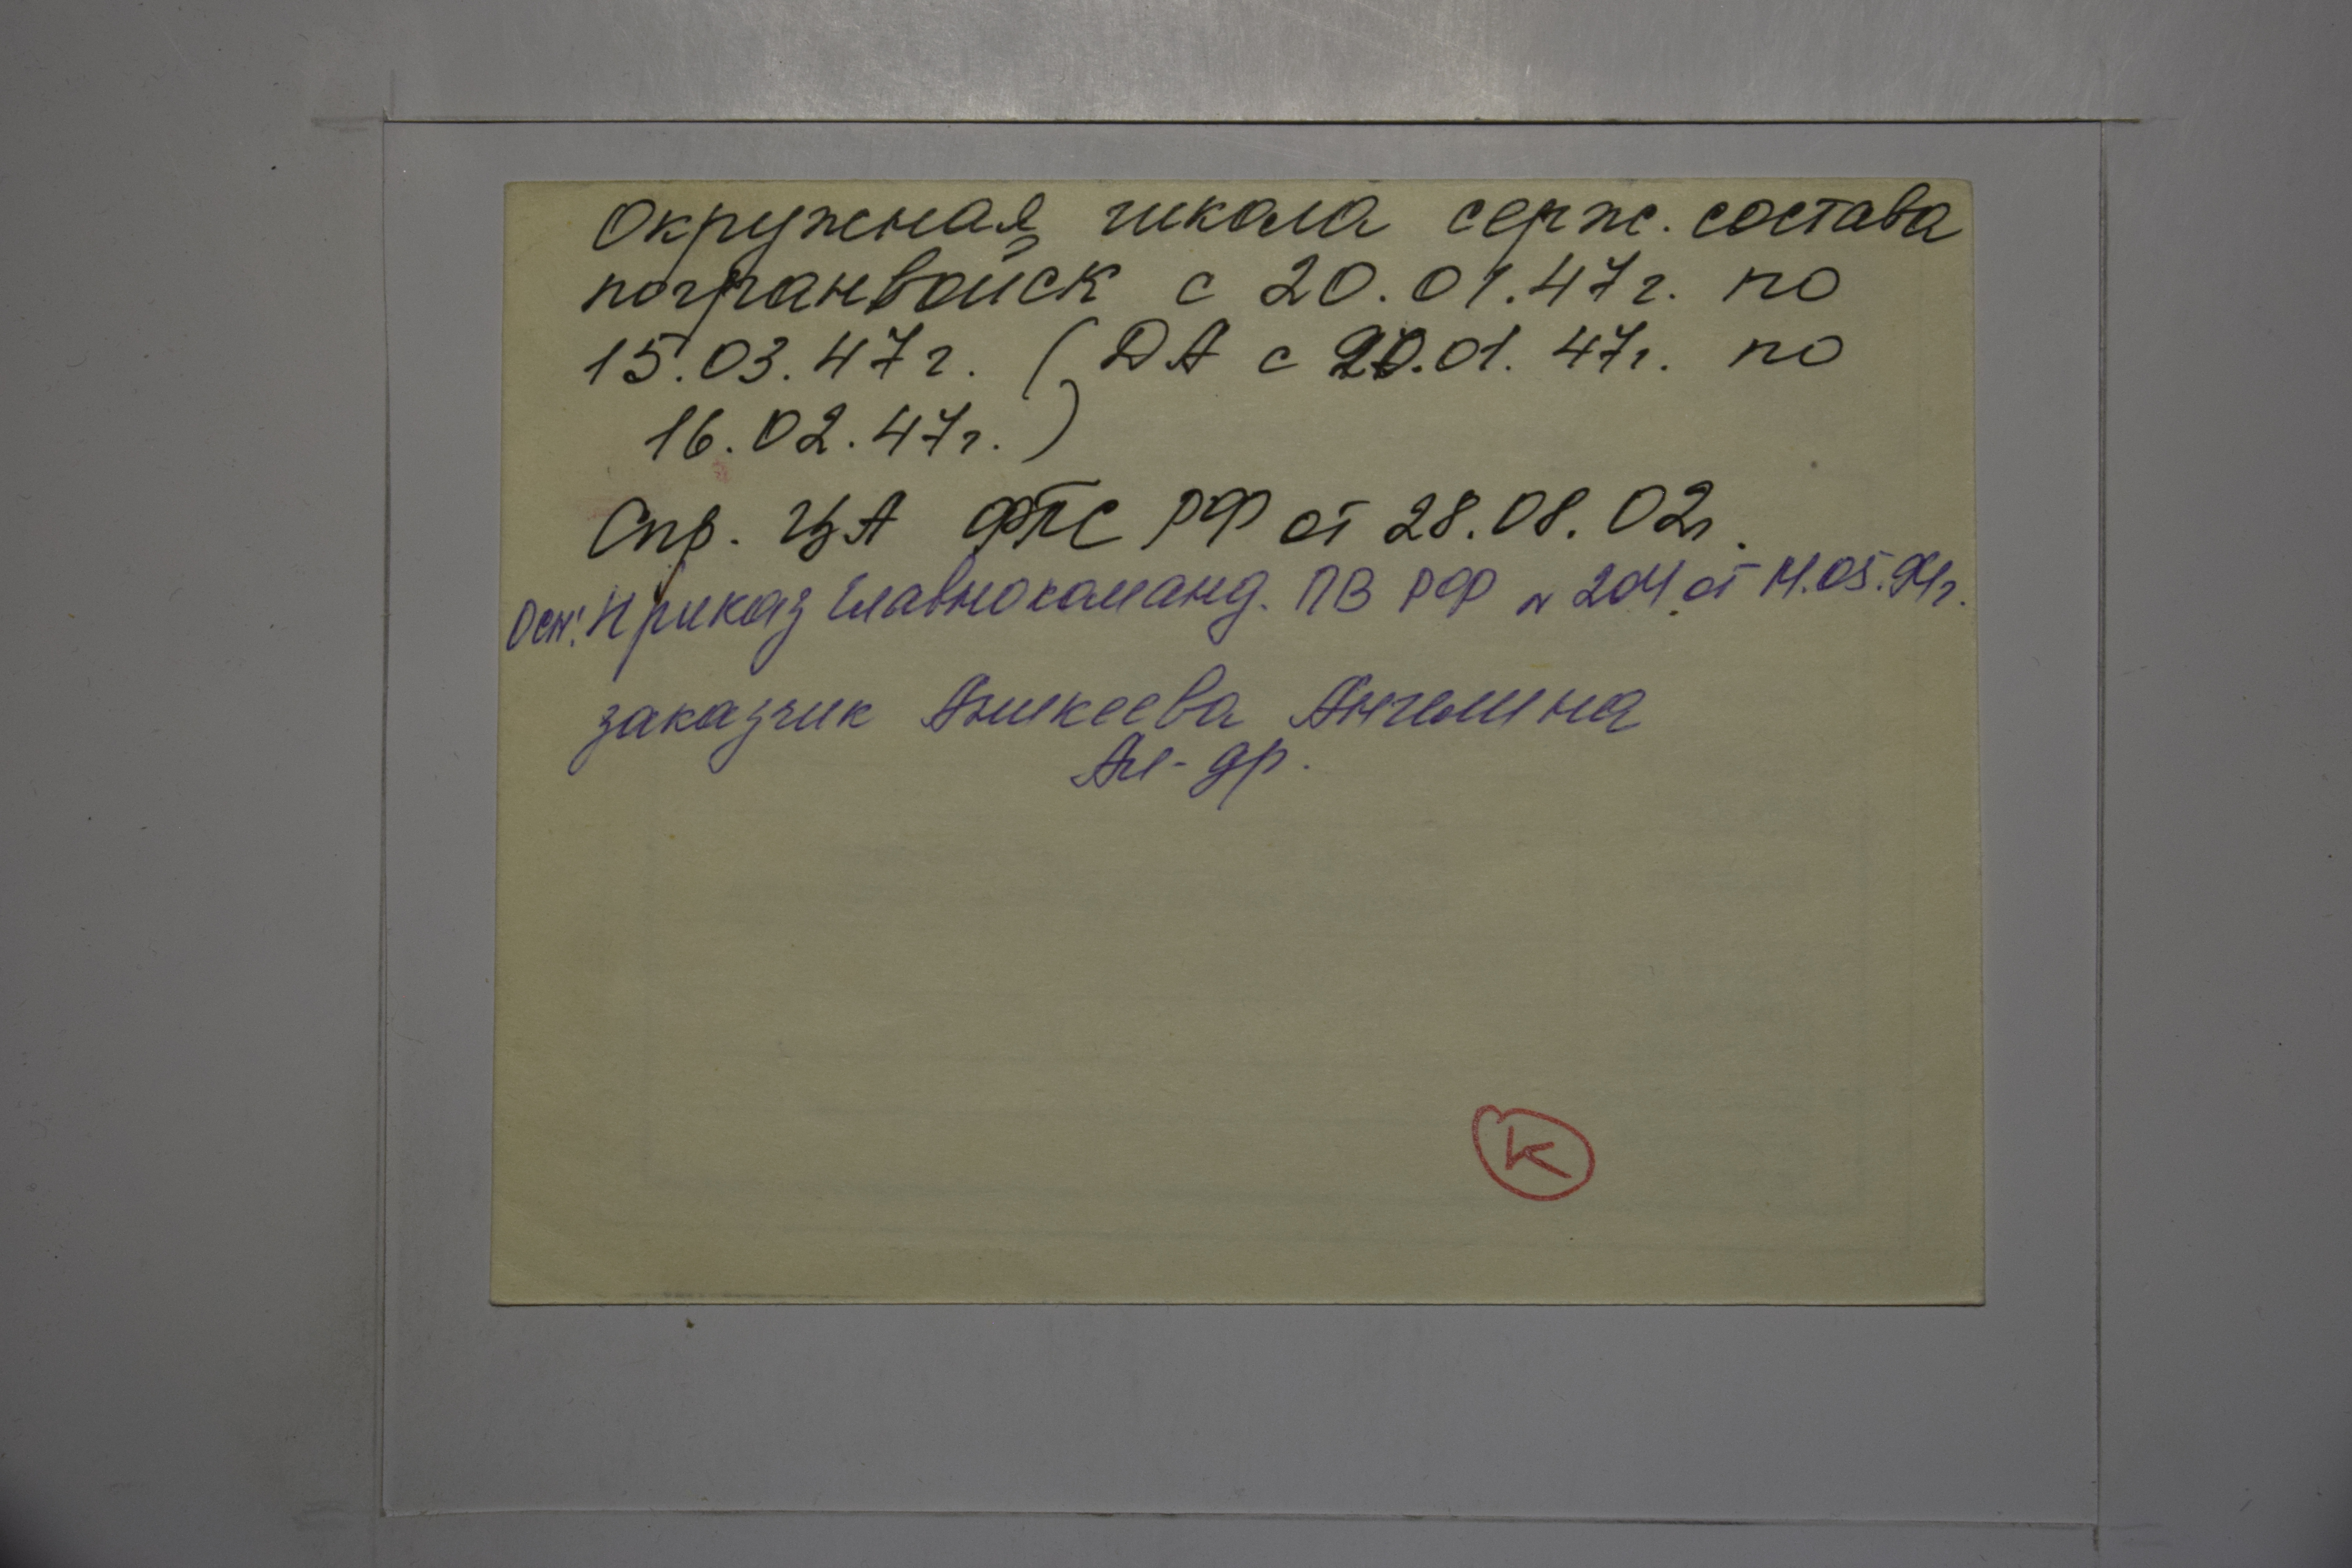 Окружная школа серж. состава
погранвойск с 20.01.47г. по
15.03.47г. (ДА с 20.01.47г. по
16.02.47г.)
Спр. ЦА ФПС РФ от 28.08.02г.
Осн: Приказ Главнокоманд. ПВ РФ № 204 от 14.05.94г.
заказчик Аникеева Ангелина
Ал-др.
К